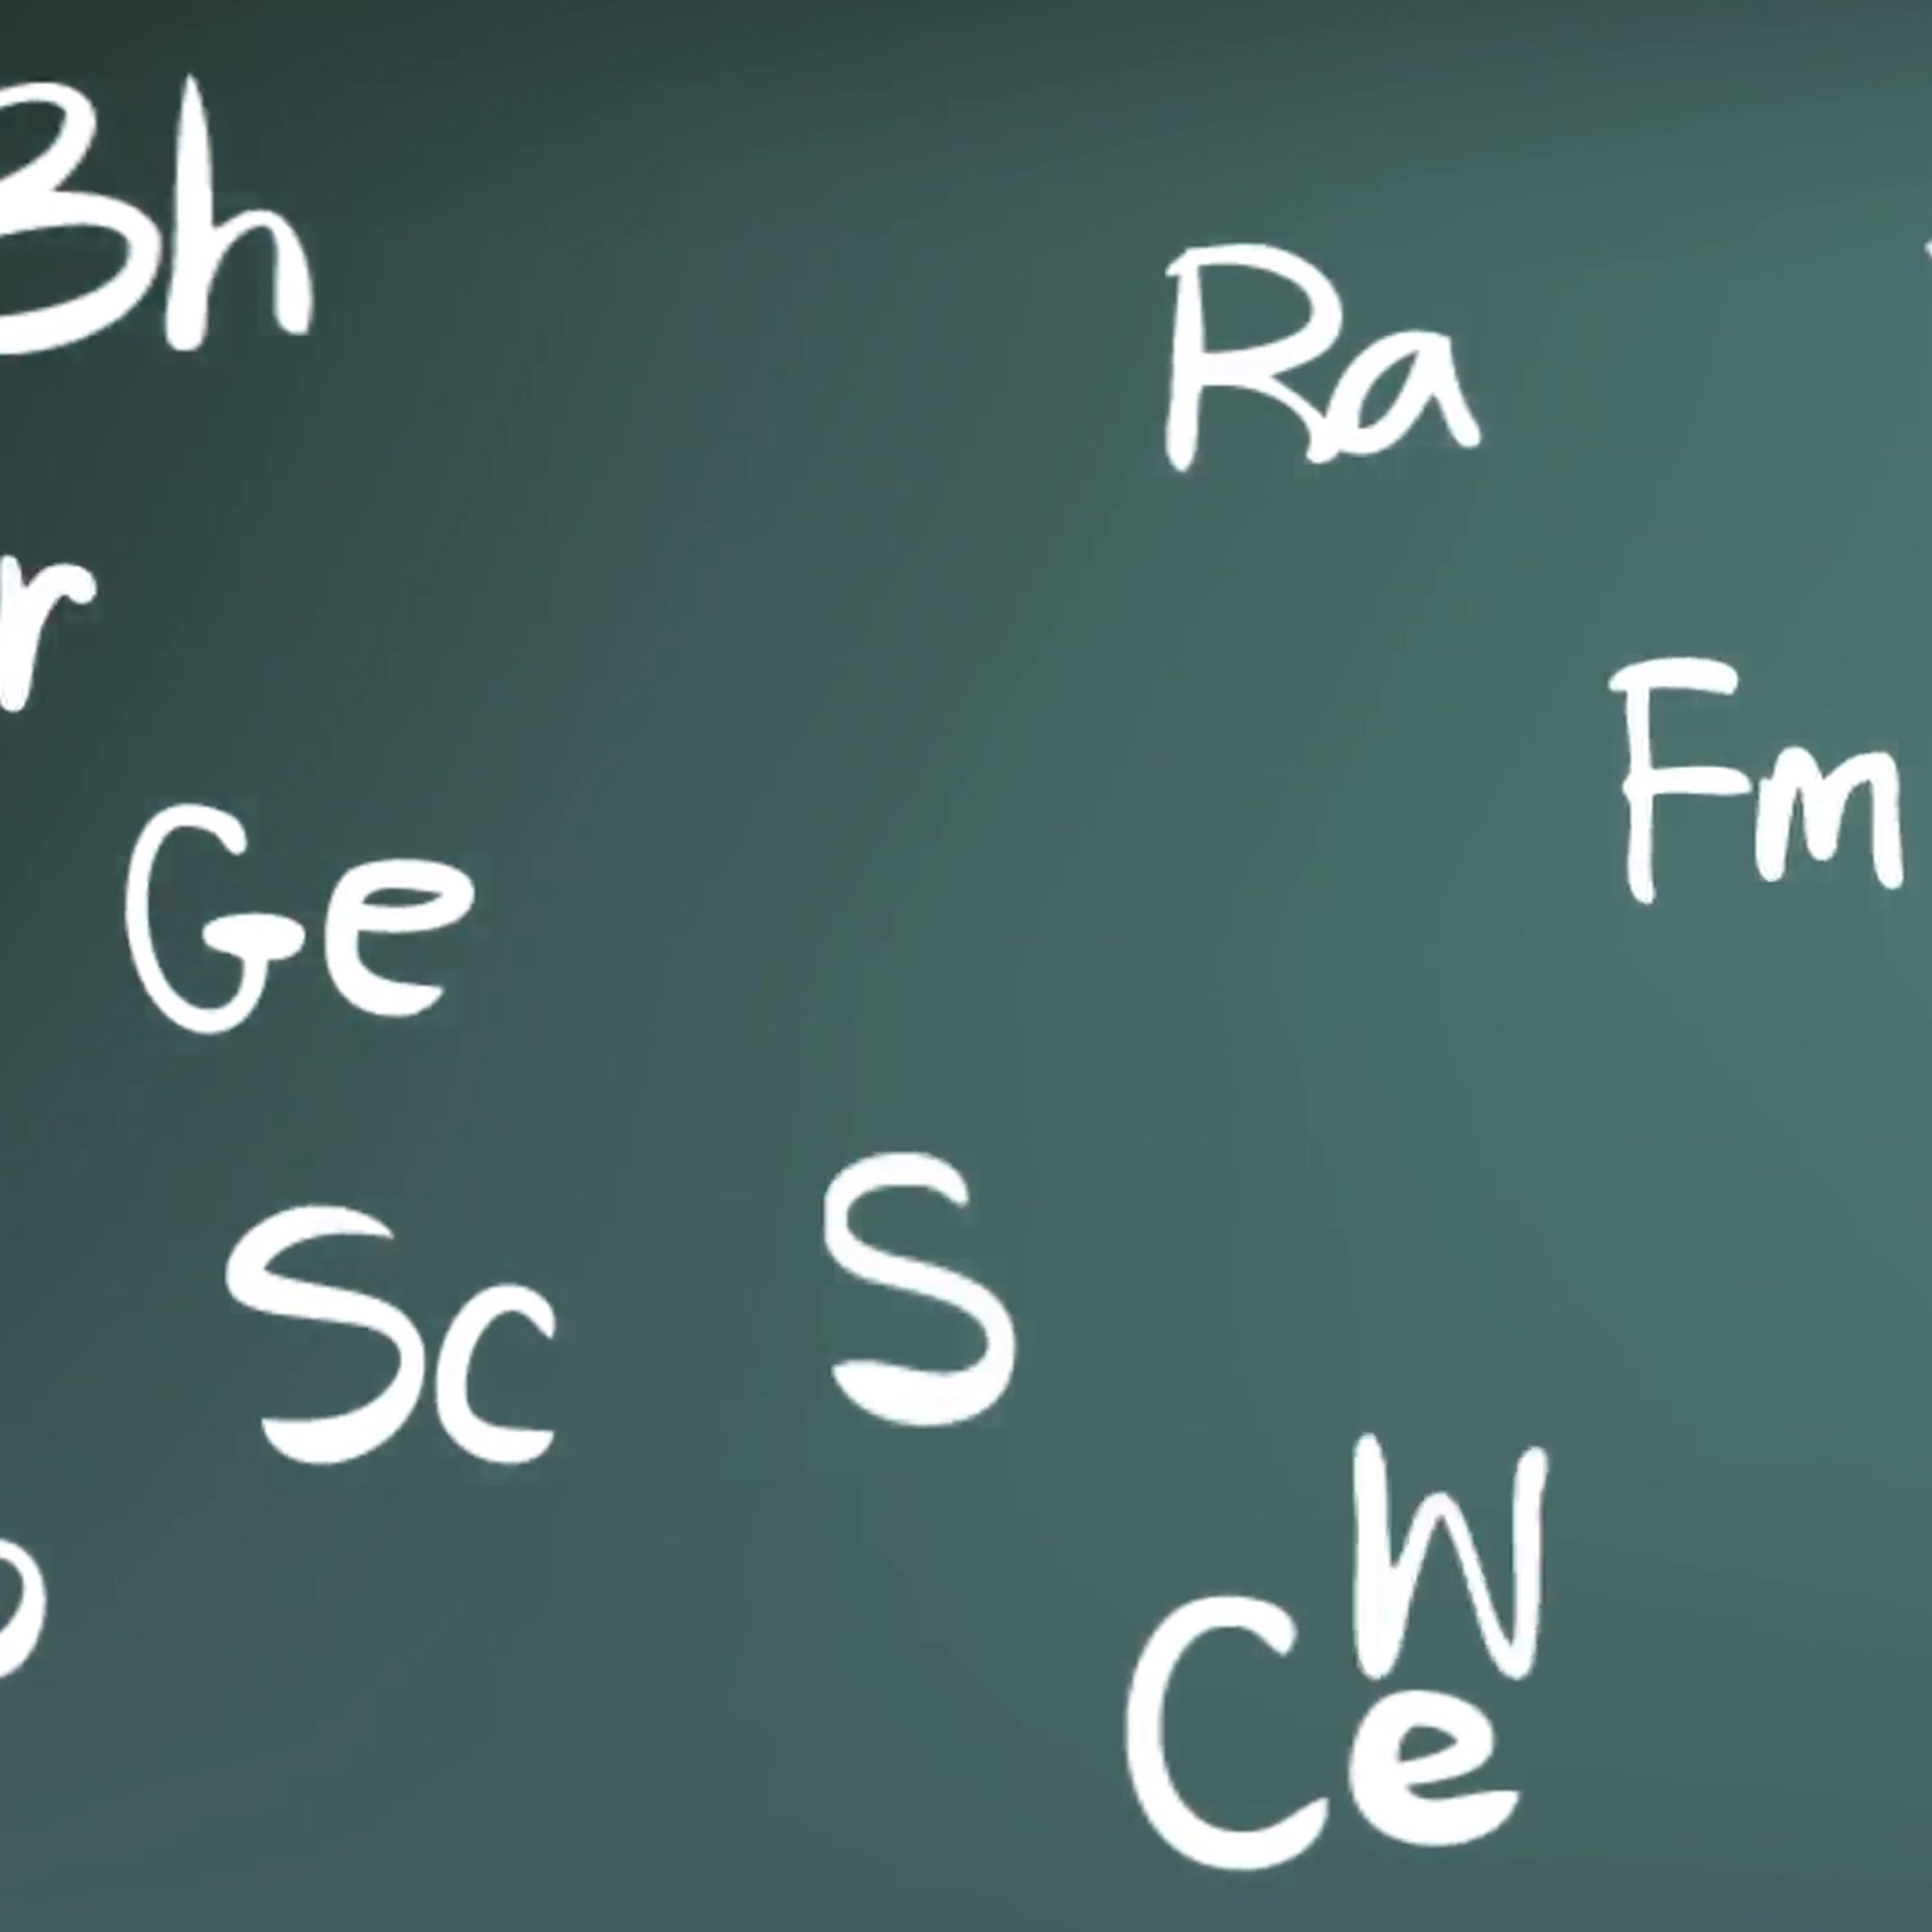 Bh
Ra
Fm
Ge
Sc
S
W
Ce